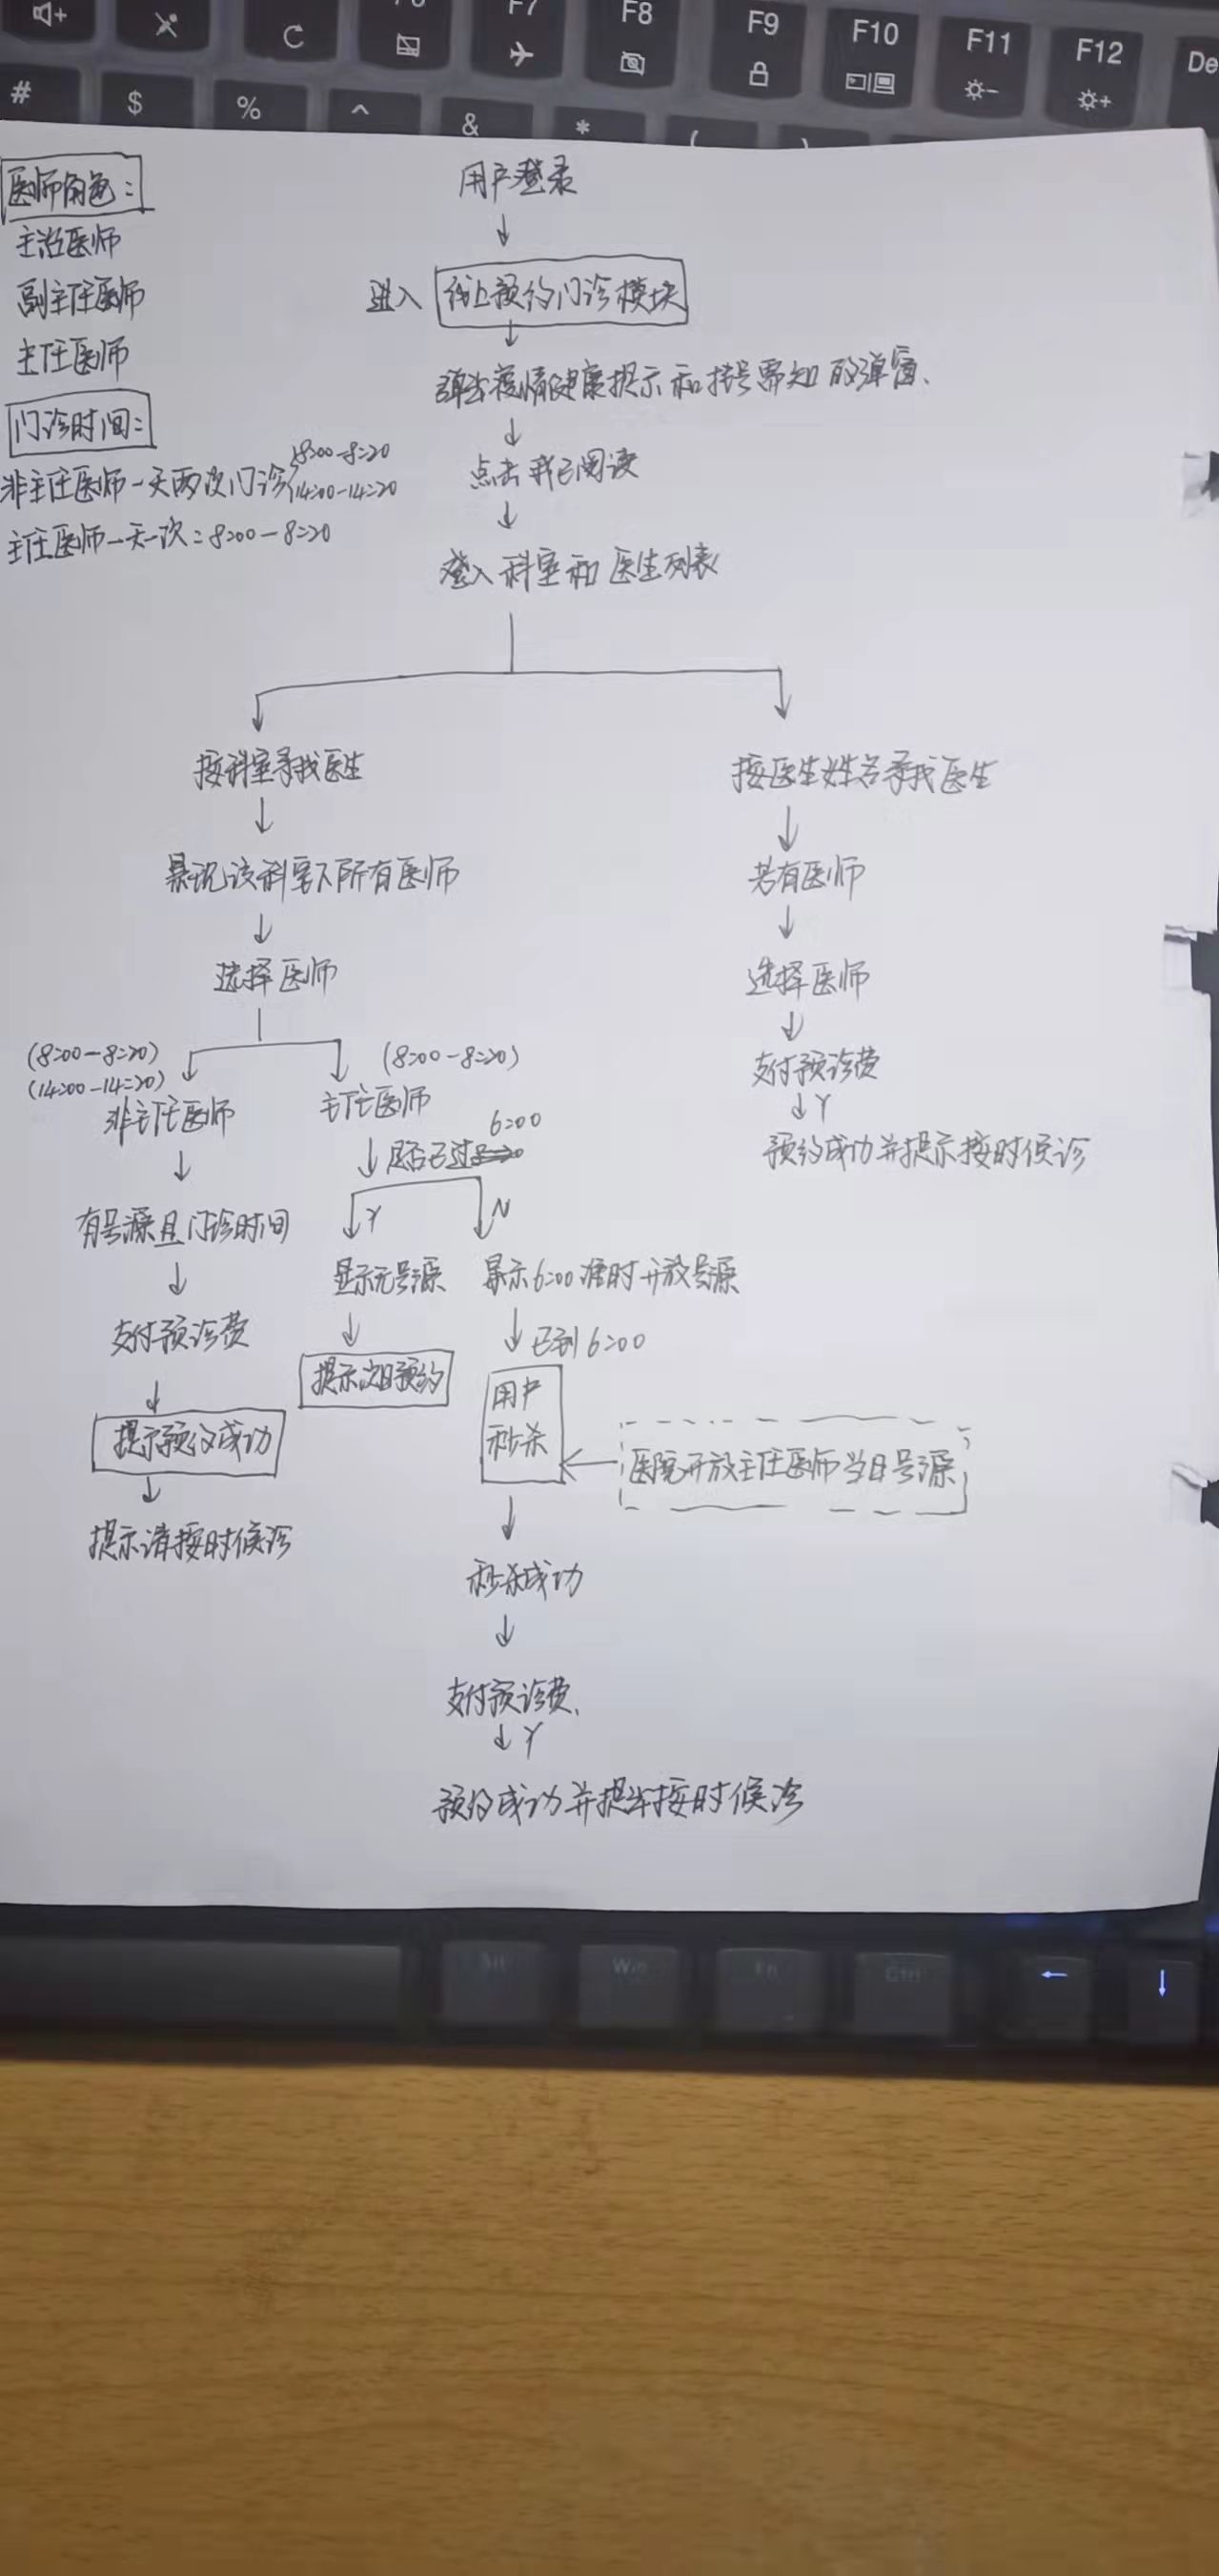 F6
F7
F8
F9
F10
F11
F12
De
#
$
%
^
&
*
(
)
医师角色:
主治医师
副主任医师
主任医师
门诊时间:
非主任医师一天两次门诊{8:00-8:20
14:00-14:20
主任医师一天一次:8:00-8:20
用户登录
进入 线上预约门诊模块
弹出疫情健康提示和挂号需知的弹窗、
点击我已阅读
登入科室和医生列表
按科室寻找医生
按医生姓名寻找医生
显现该科室下所有医师
若有医师
选择医师
选择医师
(8:00-8:20)
(14:00-14:20)
非主任医师
(8:00-8:20)
主任医师
支付预诊费
Y
预约成功并提示按时候诊
是否已过
6:00
Y
N
有号源且门诊时间
显示无号源
显示6:00准时开放号源
支付预诊费
提示次日预约
已到6:00
用户
秒杀
医院开放主任医师当日号源
提示预约成功
提示请按时候诊
秒杀成功
支付预诊费、
Y
预约成功并提示按时候诊
Alt
Win
Fn
Ctrl